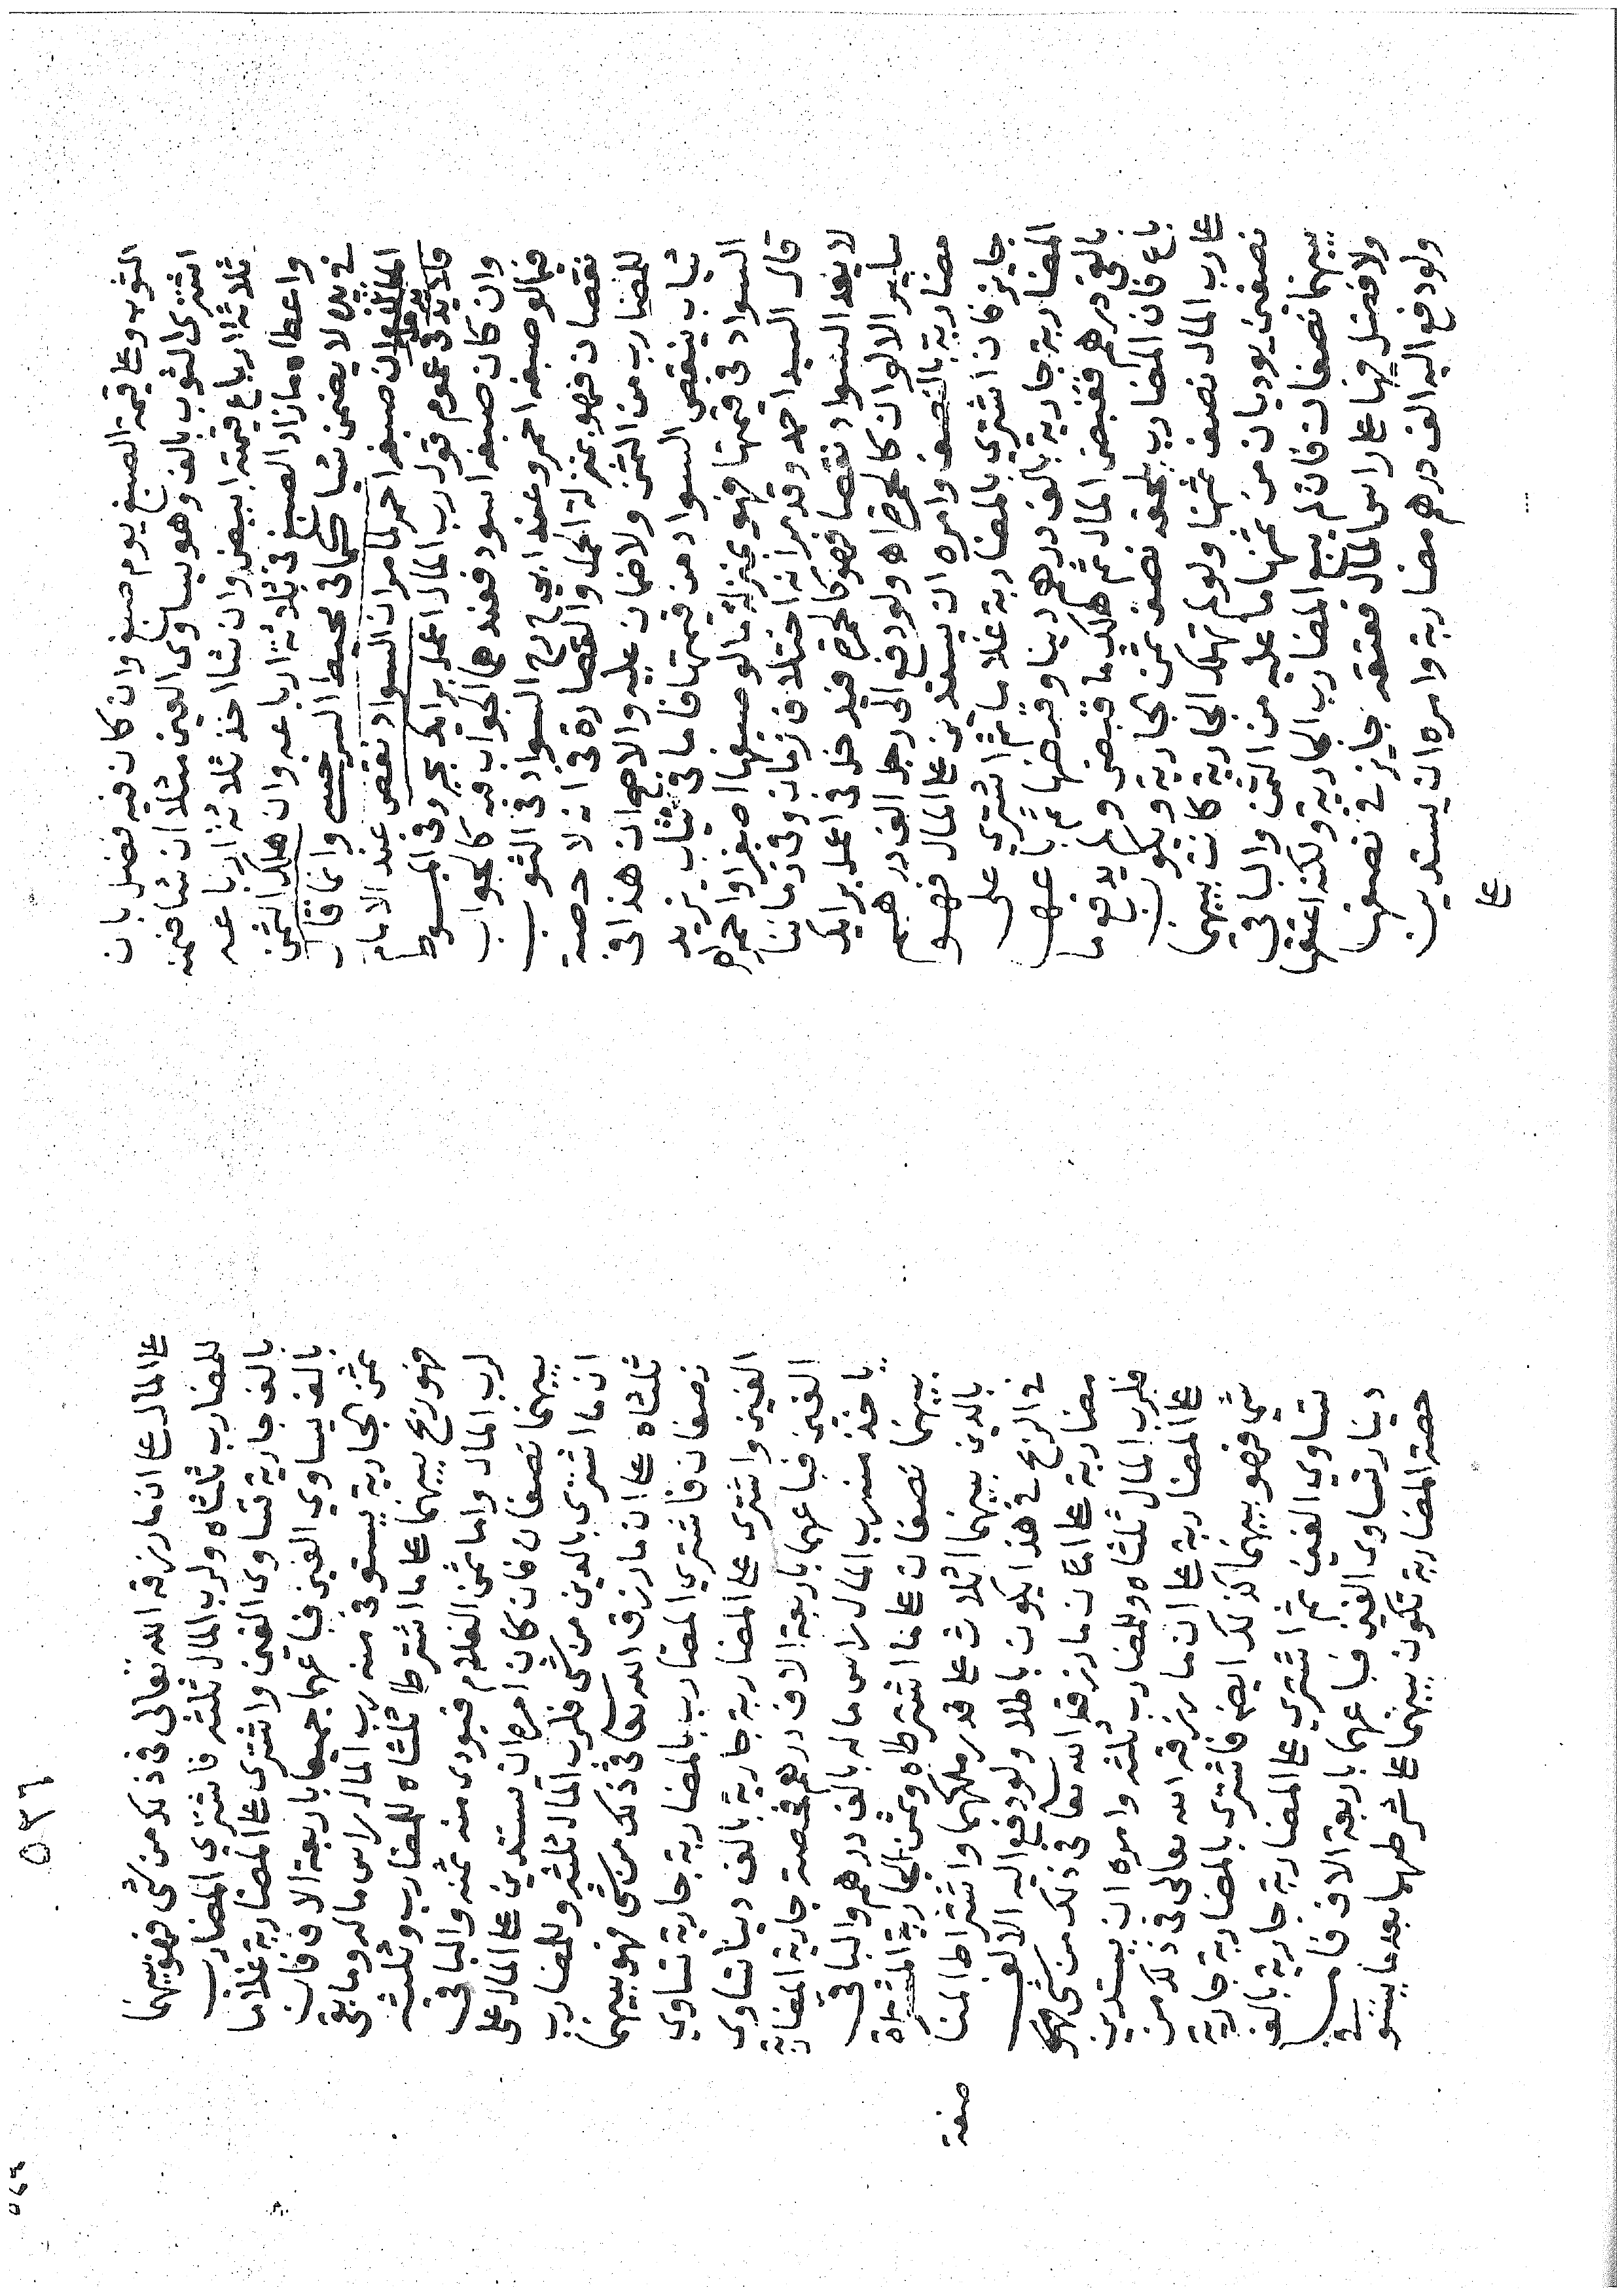 الثوب وعلى قيمة الصبغ يوم صبغ وان كان فيه فضل بان
اشترى الثوب بالف وهو يساوى الفين مثلا ان شا ضمنه
ثلاثة ارباع قيمته ابيض وان شا اخذ ثلاثة ارباعه
واعطاه مازاد الصبغ في ثلاثة ارباعه وان هلك الثمن
في يده لا يضمن شيا كما في محيط السرخسى وانما قال
احمر لما مر ان السواد نقص عند الامام
فلا يدخل فى عموم قول رب المال اعمل برايك بحر وفى المبسوط
وان كان صبغه اسود فعندهما الجواب فيه كالجواب
فيما لو صبغه احمر وعند ابي ح رح السواد فى الثوب
نقصان فهو بمنزلة الحمل والقصارة فى انه لا حصة
للمضارب من الثمن ولا ضمان عليه والاصح ان هذا فى
ثياب ينقص السواد من قيمتها فاما فى ثياب يزيد
السواد فى قيمتها فهو بمنزلة ما لو صبغها اصفر او احمر اه
قال السيد احمد وقد مر انه اختلاف زمان وفى زماننا
لا يعد السواد نقصا فهو كالحمرة فيدخل فى اعمل برايك
ساير الالوان كالحمرة اه ولو دفع الى رجل الف درهم
مضاربة بالنصف وامره ان يستدين على المال فهو
جايز فان اشترى بالمضاربة غلاما ثم اشترى على
المضاربة جارية بالف درهم دينا وقبضها ثم باعها
بالفى درهم فقبض المال ثم هلك ما قبض ولم يدفع ما
باع فان المضارب يلحقه نصف ثمن الجارية ويكون
على رب المال نصف ثمنها ولو لم تهلك الجارية كانت بينهما
نصفين يوديان من ثمنها ما عليه من الثمن والباقي
بينهما نصفان فان لم يبع المضارب الجارية ولكنه اعتقها
ولا فضل فيها على راس المال فعتقه جايز فى نصفها
ولو دفع اليه الف درهم مضاربة وامره ان يستدين
على
٥٣٦
على المال على ان ما رزقه الله تعالى فى ذلك من شى فهو بينهما
للمضارب ثلثاه ولرب المال ثلثه فاشترى المضارب
بالف جارية تساوى الفين واشترى على المضاربة غلاما
بالف يساوي الفين فباعهما جميعا باربعة الاف فان
ثمن الجارية يستوفى منه رب المال راس ماله وما بقى
فهو ربح بينهما على ما اشترطا ثلثاه للمضارب وثلثه
لرب المال واما ثمن الغلام فيودى منه ثمنه والباقى
بينهما نصفان فان كان امره ان يستدين على المال على
ان ما اشترى بالدين من شى فلرب المال ثلثه وللمضارب
ثلثاه على ان ما رزق الله تعالى فى ذلك من شى فهو بينهما
نصفان فاشترى المضارب بالمضاربة جارية تساوي
الفين واشترى على المضاربة جارية بالف دينا تساوي
الفين فباعهما باربعة الاف درهم فحصة جارية المضاربة
ياخذ منه رب المال راس ماله بالف درهم والباقى
بينهما نصفان على ما اشترطاه وثمن الجارية المشتراة
بالدين بينهما اثلاث على قدر ملكهما واشتراط المنا
صفة
فى الربح فى هذا يكون باطلا ولو دفع اليه الالف
مضاربة على ان ما رزقه الله تعالى فى ذلك من شى فهو
فلرب المال ثلثاه وللمضارب ثلثه وامره ان يستدين
على المضاربة على ان ما رزقه الله تعالى فى ذلك من
شى فهو بينهما كذلك ايضا فاشترى بالمضاربة جارية
تساوي الفين ثم اشترى على المضاربة جارية بالف
دينار تساوى الفين فباعهما باربعة الاف فان
حصة المضاربة تكون بينهما على شرطهما بعد ما يستوفى